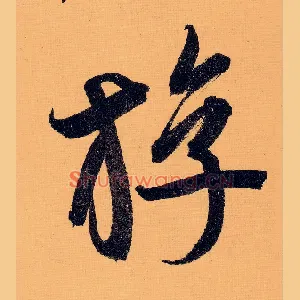 游
Shufawang.CN